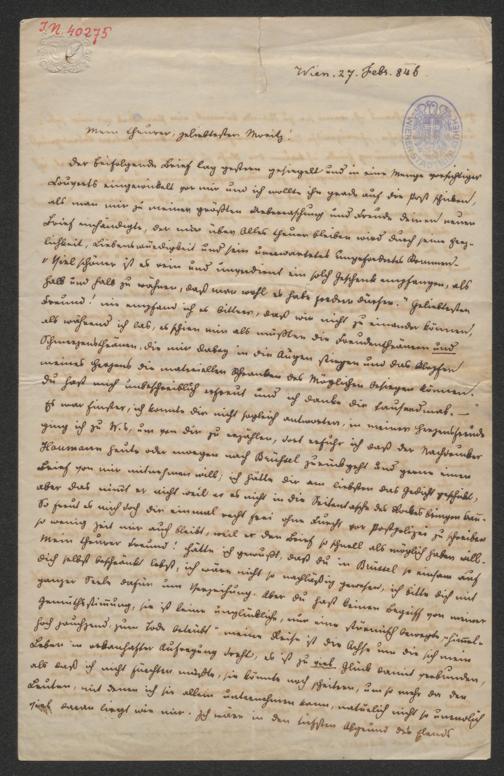 I.N. 40275
Wien. 27. Febr. 846.
Mein theurer, geliebtester Moritz!
Der beifolgende Brief lag gestern gesiegelt und in eine Menge vorsichtiger
Couverts eingewickelt vor mir und ich wollte ihn gerade auf die Post schicken,
als man mir zu meiner größten Ueberraschung und Freude deinen neuen
Brief einhändigte, der mir über Alles theuer bleiben wird durch seine Herz-
lichkeit, Liebenswürdigkeit und sein unerwartetes Kommen.
"Viel schöner ist es rein und unverdient ein solch Geschenk empfangen, als
halb und halb zu wähnen, daß man wohl es habe fordern dürfen." Geliebtester
Freund! nie empfand ich es bitterer, daß wir nicht zu einander können,
als während ich las, es schien mir als müßten die Freudenthränen und
Schmerzensthränen, die mir dabey in die Augen stiegen und das Klopfen
meines Herzens die materiellen Schranken des Möglichen besiegen können.
Du hast mich unbeschreiblich erfreut und ich danke dir tausendmal. —
Es war finster, ich konnte dir nicht sogleich antworten, in meiner Herzensfreude
ging ich zu um von dir zu erzählen, dort erfuhr ich daß der
heute oder morgen nach Brüssel zurückgeht und gerne einen
Brief von mir mitnehmen will; ich hätte dir am liebsten das Gedicht geschickt,
aber das nimt er nicht weil er es nicht in die Seitentasche des Rockes bringen kann.
So freut es mich doch dir einmal recht frei ohne Furcht vor Postpolizei zu schreiben
so wenig Zeit mir auch bleibt, weil er den Brief so schnell als möglich haben will.
Mein theurer Freund! hätte ich gewußt, daß du in Brüssel so einsam auf
dich selbst beschränkt lebst, ich wäre nicht so nachlässig gewesen, ich bitte dich mit
ganzer Seele dafür um Verzeihung. Aber du hast keinen Begriff von meiner
Gemüthsstimmung, sie ist keine unglückliche, nur eine stürmisch bewegte "himmel-
hoch jauchzend, zum Tode betrübt" meine Reise ist die Achse um die sich mein
Leben in krankhafter Aufregung dreht, es ist zu viel Glück damit verbunden,
als daß ich nicht fürchten müßte, sie könnte noch scheitern, um so mehr da den
Leuten, mit denen ich sie allein unternehmen kann, natürlich nicht so unendlich
viel daran liegt wie mir. Ich wäre in den tiefsten Abgrund des Elends